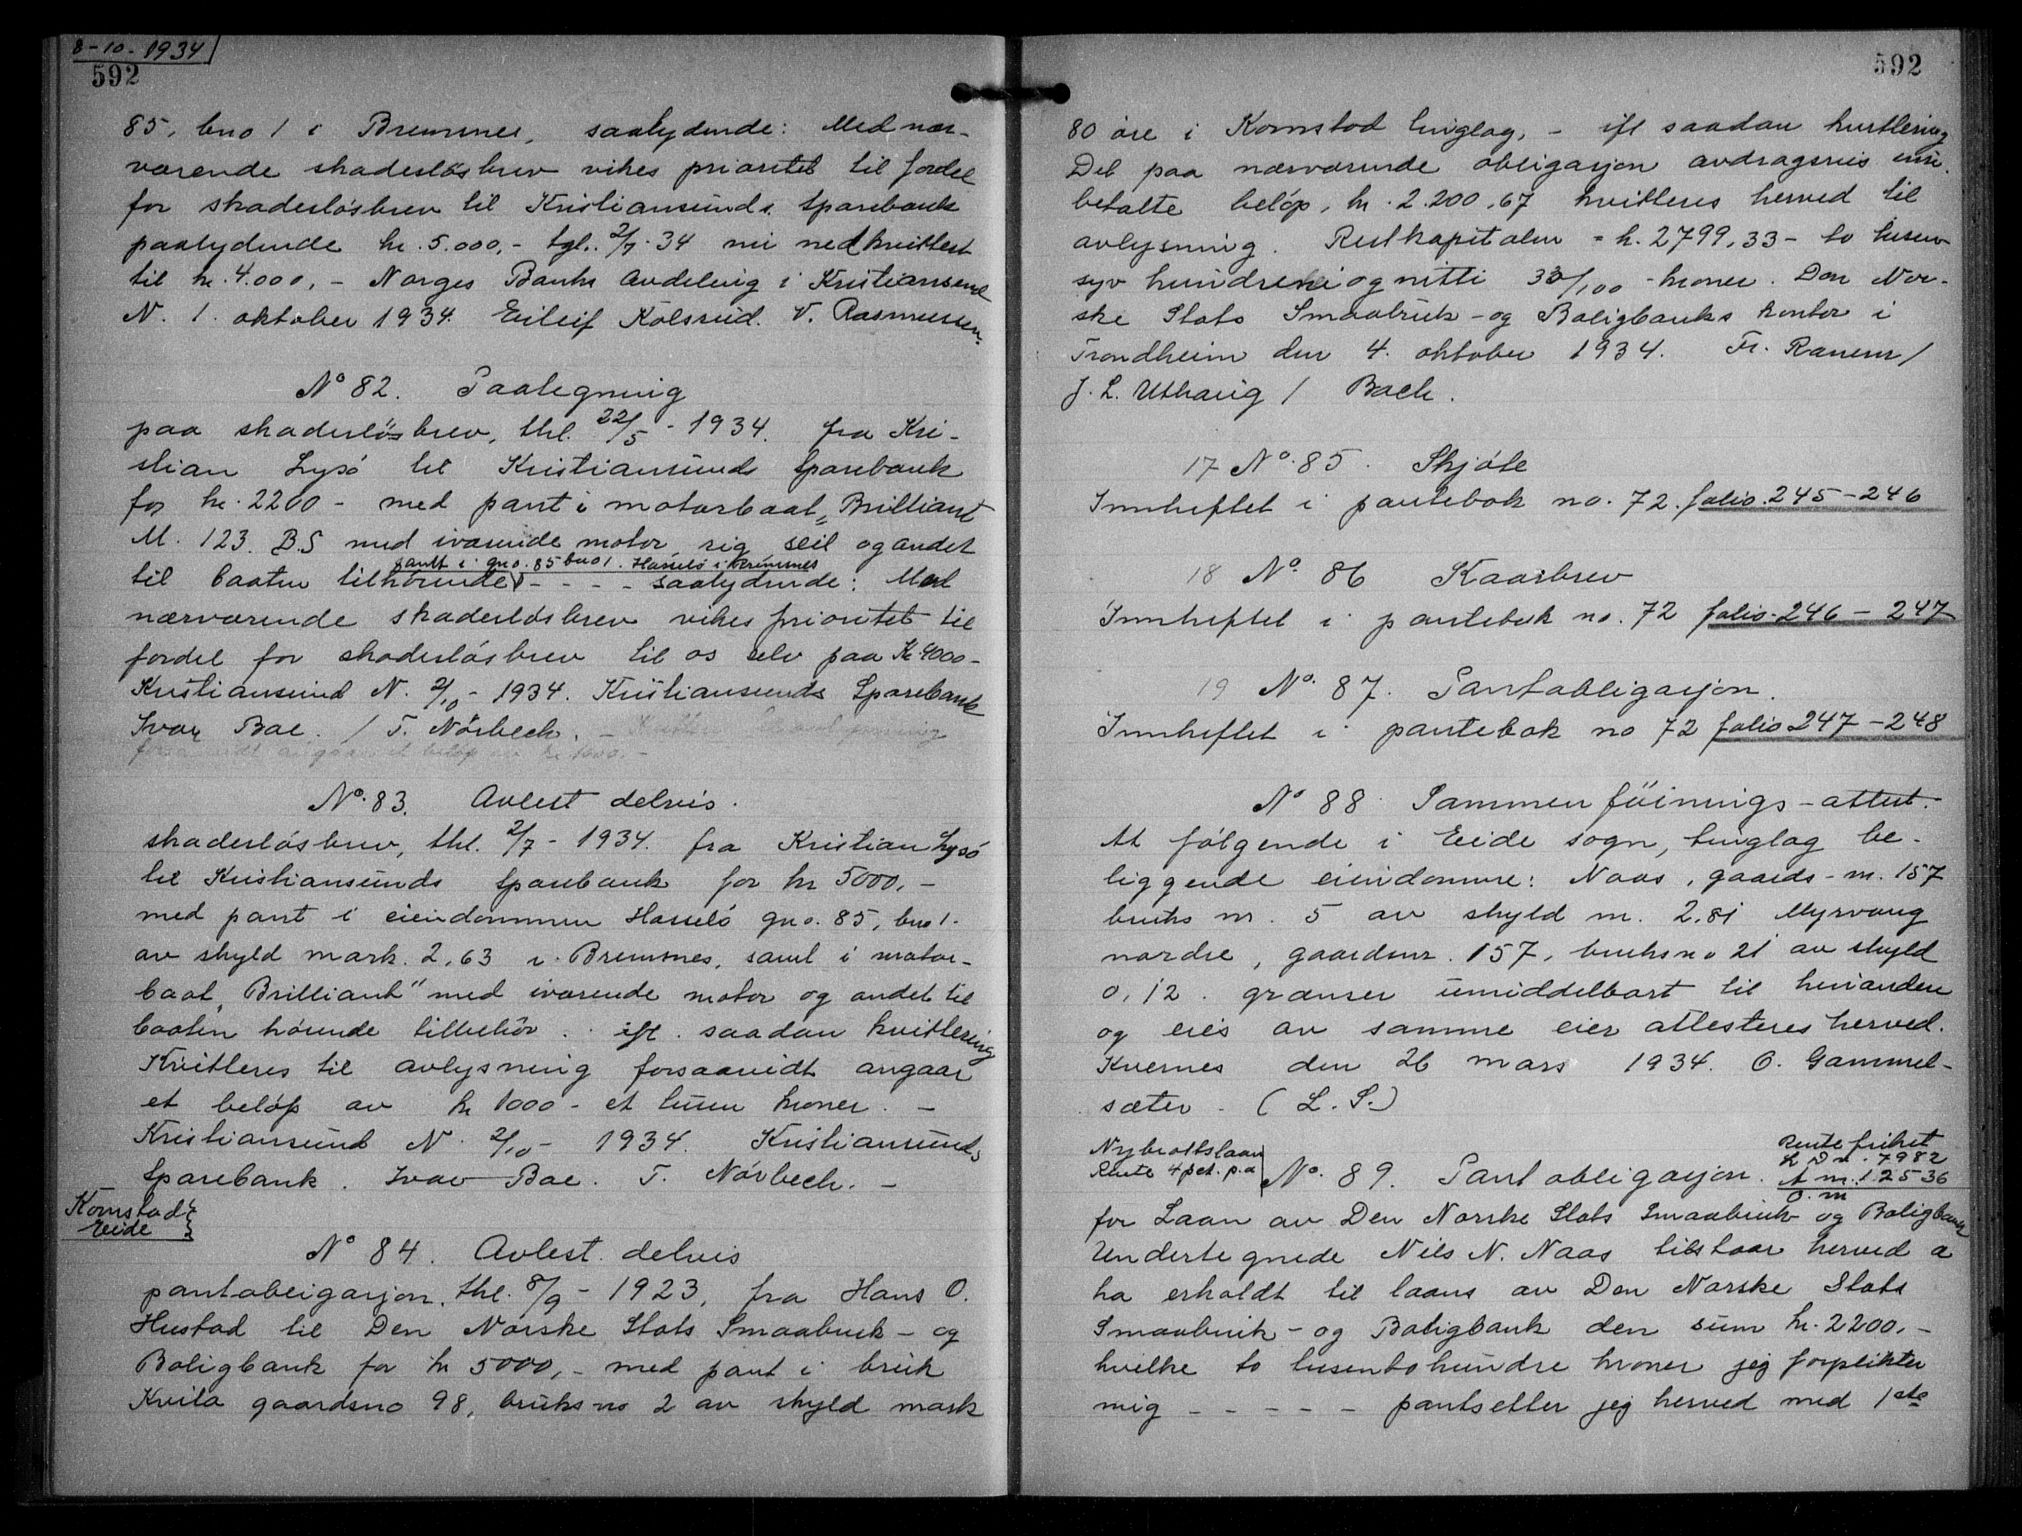 8-10-1934
592
85, bno 1 i Bremsnes, saalydende: Med nær-
værende skadesløsbrev vikes prioritet til fordel
for skadesløsbrev til Kristiansunds Sparebank
paalydende kr. 5.000,- tgl. 2/7-34 nu nedkvittert
til kr. 4.000,- Norges Banks Avdeling i Kristiansund
N. 1. oktober 1934. Eileif Kolsrud. V. Rasmussen.
No 82. Paategning
paa skadesløsbrev, thl. 22/5 - 1934. fra Kri-
stian Lysø til Kristiansunds Sparebank
for kr. 2200 - med pant i motorbaat „Brilliant
M. 123. B.S med iværende motor, rig, seil og andet
pant i gno. 85 bno 1. Hasselø i Bremsnes
til baaten tilhørende - - - - saalydende: Med
nærværende skadesløsbrev vikes prioritet til
fordel for skadesløsbrev til os selv paa Kr 4000-
Kristiansund N. 2/10 - 1934. Kristiansunds Sparebank
Ivar Bae. / T. Nørbech. -
No. 83. Avlest delvis.
skadesløsbrev, thl. 2/7 - 1934. fra Kristian Lysø
til Kristiansunds Sparebank for kr 5000,-
med pant i eiendommen Hasselø gno. 85, bno 1.
av skyld mark. 2,63 i Bremsnes, samt i motor-
baat „Brilliant" med iværende motor og andet til
baaten hørende tilbehør . . ift. saadan kvittering
Kvitteres til avlysning forsaavidt angaar
et beløp av kr 1000 - et tusen kroner. -
Kristiansund N. 2/10 - 1934. Kristiansunds
Sparebank. Ivar Bae. T. Nørbech. -
Komstad
Eide
No 84. Avlest. delvis
pantobligasjon, thl. 8/9 - 1923, fra Hans O.
Hustad til Den Norske Stats Smaabruk - og
Boligbank for kr 5000,- med pant i bruk
Kvila gaardsno 98, bruksno 2 av skyld mark
592
80 øre i Kornstad tinglag, - ift saadan kvittering
Det paa nærværende obligasjon avdragsvis inn-
betalte beløp, kr. 2.200,67 kvitteres herved til
avlysning. Restkapitalen = kr. 2799,33 - to tusen
syv hundre ni og nitti 33/100 - kroner. Den Nor-
ske Stats Smaabruk - og Boligbanks kontor i
Trondheim den 4. oktober 1934. Fr. Ranem /
J. L. Uthaug / Bach.
17 No. 85. Skjøte
Innheftet i pantebok no. 72. folio. 245-246
18 No. 86 Kaarbrev
Innheftet i pantebok no. 72 folio. 246 - 247
19 No. 87. Pantobligasjon.
Innheftet i pantebok no 72 folio 247 - 248
No 88. Sammenføinings - attest.
At følgende i Eide sogn, tinglag be-
liggende eiendomme: Naas, gaards - nr. 157
bruks nr. 5 av skyld m. 2,81 Myrvang
nordre, gaardsnr. 157, bruksno 21 av skyld
0,12. grænser umiddelbart til hinanden
og eies av samme eier attesteres herved.
Kvernes den 26 mars 1934. O. Gammel-
sæter. (L. S.)
Nybrottslaan
Rente 4 pct. p.a
No. 89. Pantobligasjon.
Rentefrihet
L Dnr. 7982
A nr. 12536
O. m
for Laan av Den Norske Stats Smaabruk og Boligbank
Undertegnede Nils N. Naas tilstaar herved a
ha erholdt til laans av Den Norske Stats
Smaabruk - og Boligbank den sum kr. 2200,-
hvilke to tusen to hundre kroner jeg forplikter
mig - - - - - pantsetter jeg herved med 1ste